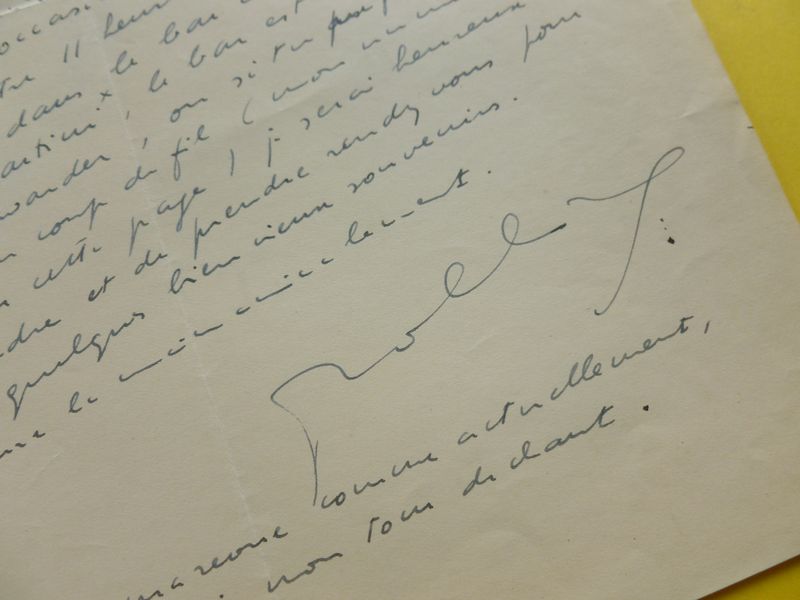 occasi
11 heur
dans le bar
artini x, le bar est
wander, ou si tu
coup de fil (mon
cette page) je serai heureux
dre et de prendre rendez vous pour
quelques bien vieux souvenirs.
la main amicalement.
comme actuellement,
mon tour de chant.